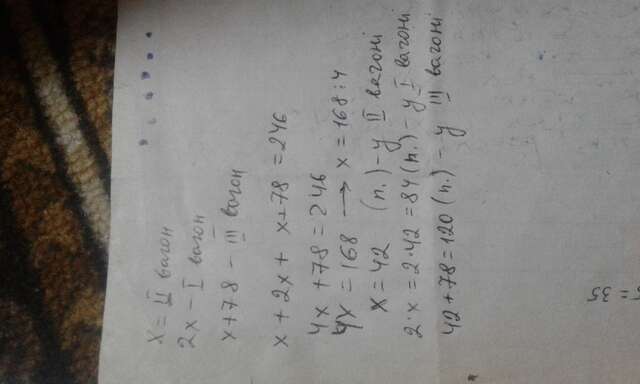 x = II вагон
2x - I вагон
x+78 - III вагон
x + 2x + x+78 = 246
4x + 78 = 246
4x = 168 → x = 168:4
x = 42 (п.) - у II вагоні
2·x = 2·42 = 84 (п.) - у I вагоні
42+78 = 120 (п.) - у III вагоні
= 35